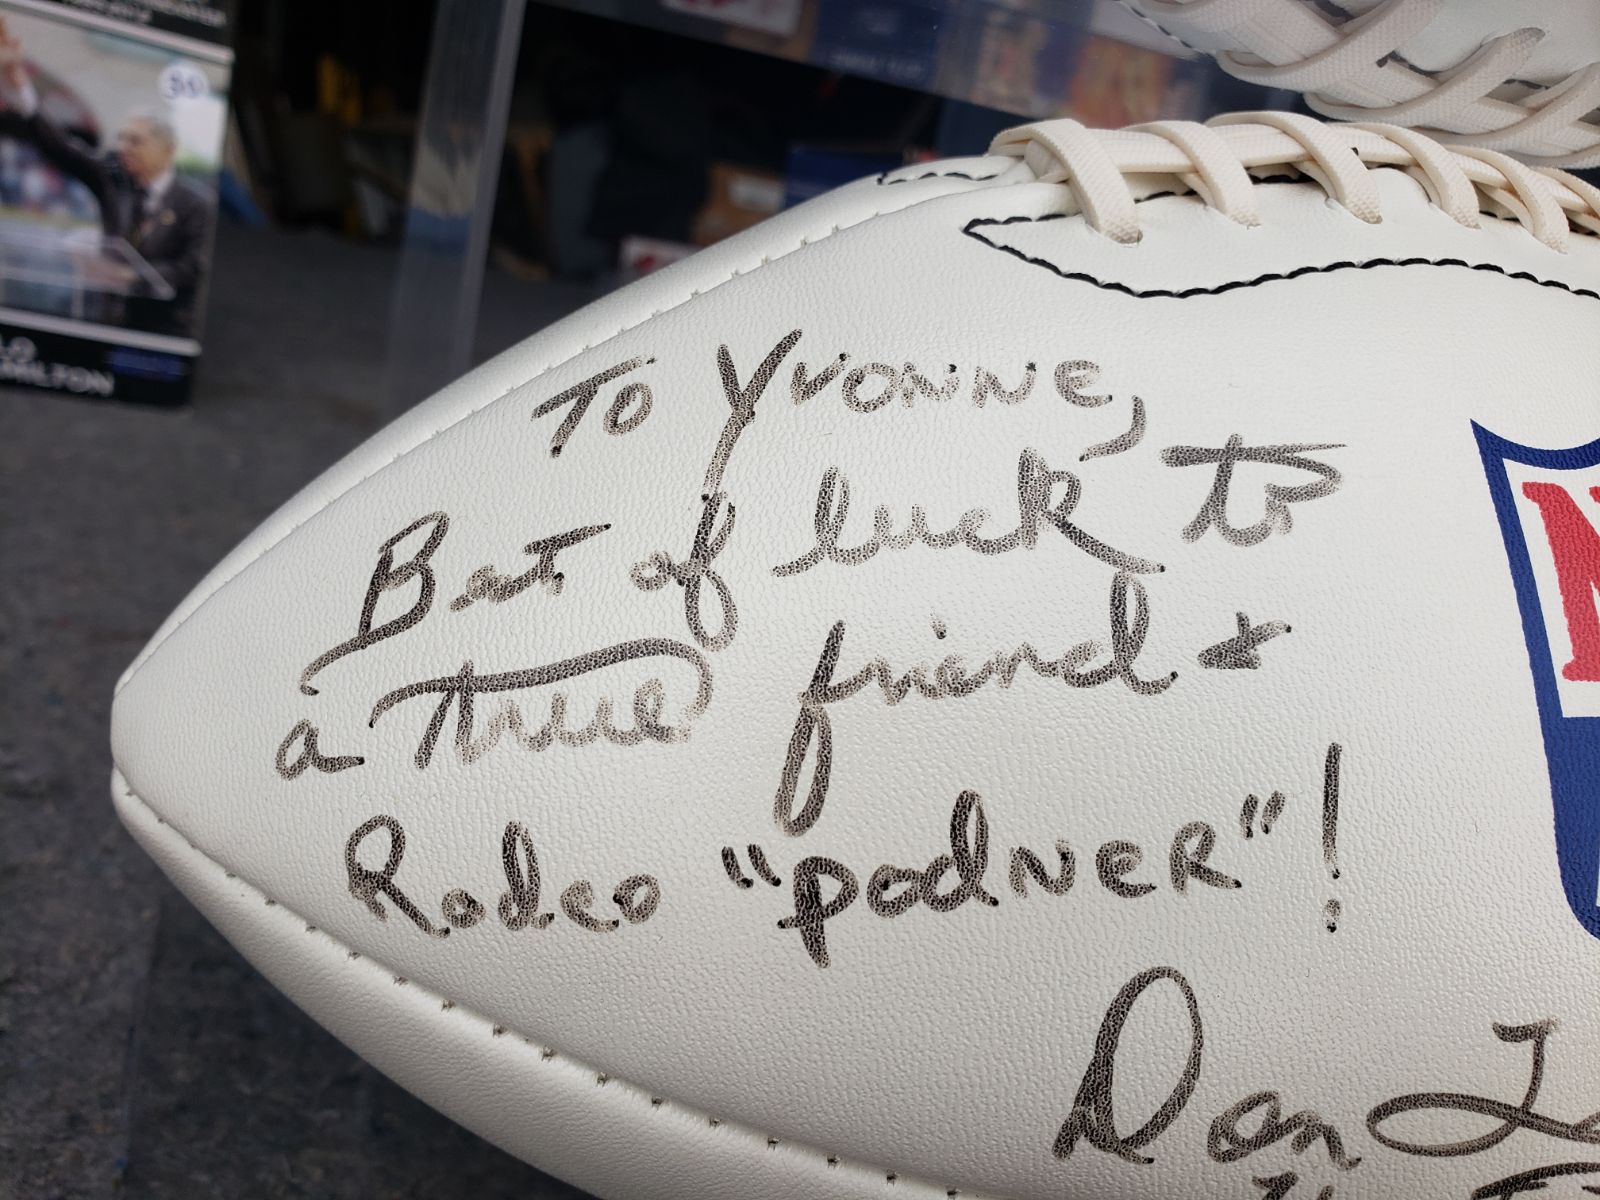 To Yvonne,
Best of luck to
a true friend &
Rodeo "podNeR"!
Dan
MILTON